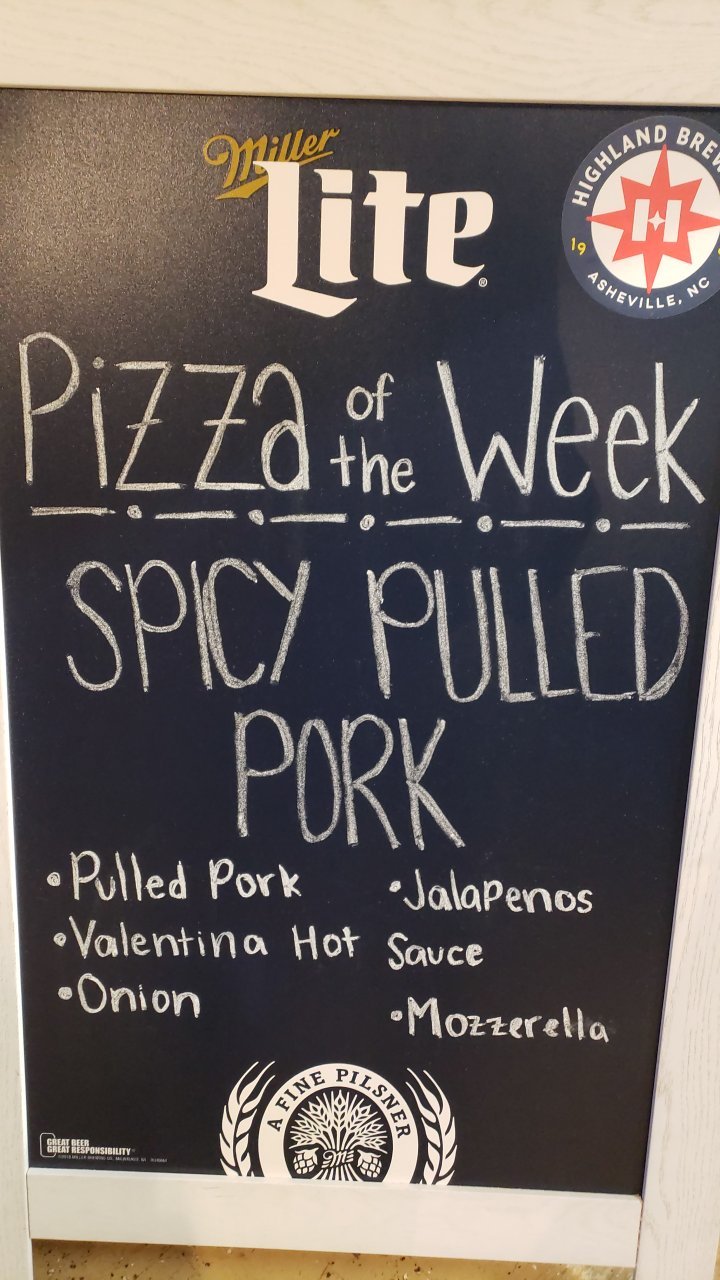 Miller
Lite
HIGHLAND BREW
19
ASHEVILLE, NC
Pizza of the Week
SPICY PULLED
PORK
•Pulled Pork •Jalapenos
•Valentina Hot Sauce
•Onion
•Mozzerella
A FINE PILSNER
GREAT BEER
GREAT RESPONSIBILITY